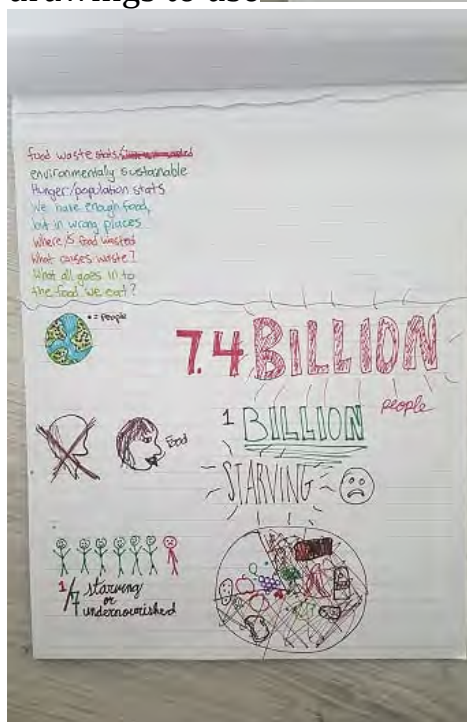 drawings to use
food waste stats/
environmentaly sustainable
Hunger/population stats
We have enough food,
but in wrong places
Where is food wasted
What causes waste?
What all goes in to
the food we eat?
= people
7.4 BILLION
people
1 BILLION
Food
STARVING
1/7 starving
or
undernourished